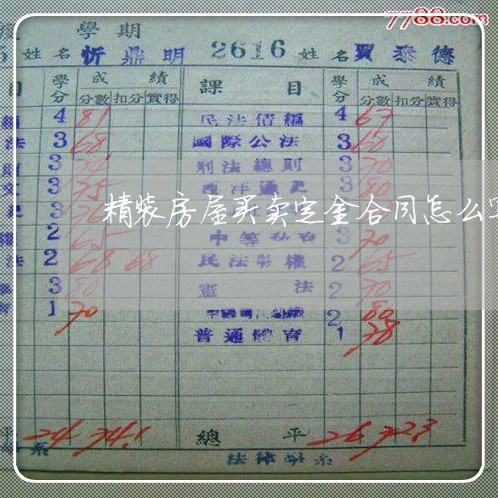 7788.com
學期
姓名 忻鼎明 2616 姓名 賈泰德
目 學分 成績 課目 學分 成績
分數 扣分 實得 分數 扣分 實得
4 81 民法債編 4 67
法 3 68 國際公法 3 60
3 刑法總則 3 70
3 75 西洋通史 3 80
精装房屋买卖定金合同怎么
2 65 3 70
法 2 68 68 民法物權 2 65
3 80 憲法 2 70
1 70 2 80
普通體育 1 78
平 24 74.1 總平 26 72.3
系 法律學系